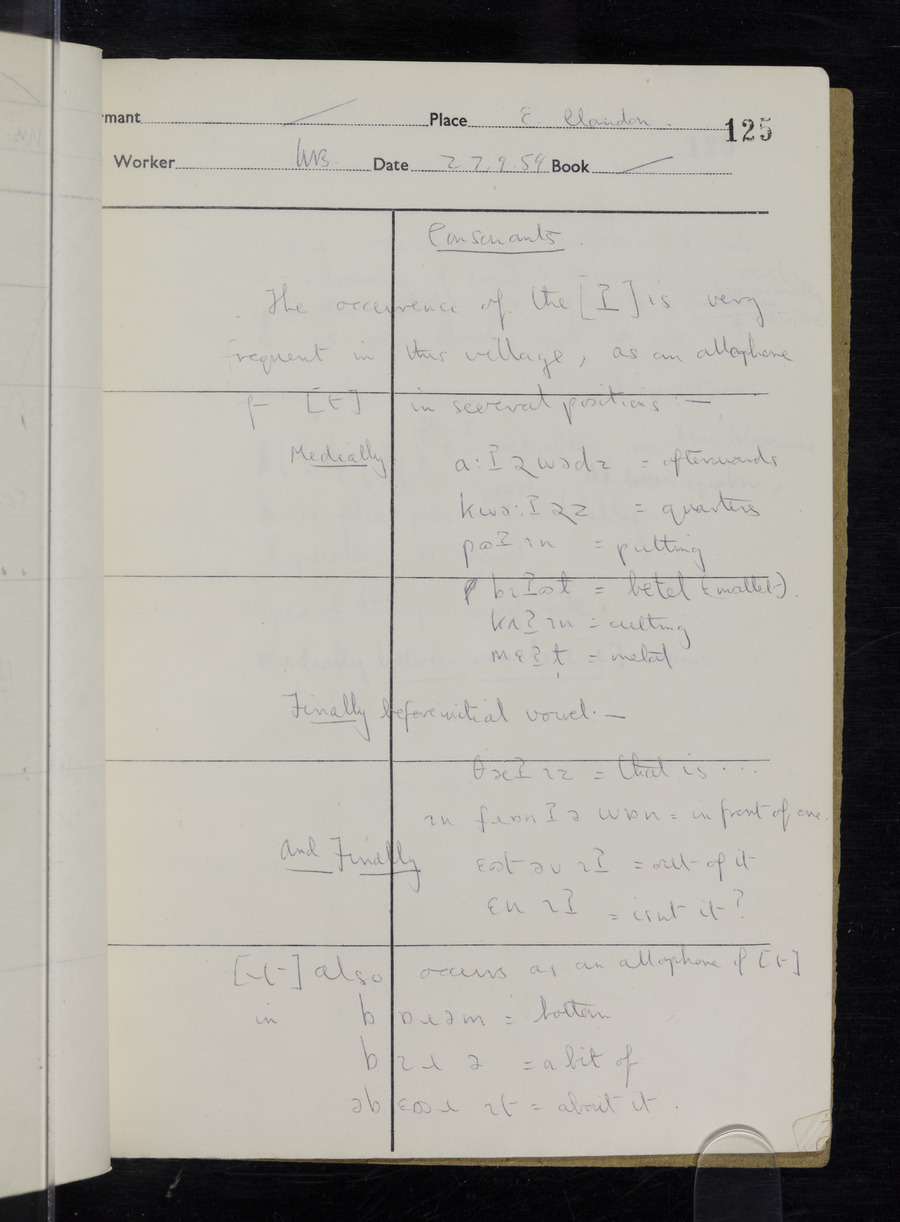 rmant Place E. Clandon. 125
Worker WB Date 27.9.59 Book
Consonants.
The occurrence of the [ʔ] is very
frequent in this village, as an allophone
of [t] in several positions :—
Medially a:ʔəwədz = afterwards
kwɔ:ʔəz = quarters
pʊʔɪn = putting
bɪʔʊt = betel (mallet)
kʌʔɪn = cutting
mɛʔt = metal
Finally before initial vowel :—
θæʔ ɪz = that is ...
ɪn fɹɒnʔ ə wɒn = in front of one.
and Finally ɛʊt əv ɪʔ = out of it
ɛn ɪʔ = isn't it?
[ɹ] also occurs as an allophone of [t]
in bɒɹəm = bottom
bɪɹ ə = a bit of
əbɛʊɹ ɪt = about it.